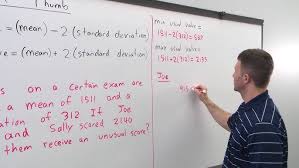 Thumb
= (mean) - 2 (standard deviation)
= (mean) + 2 (standard deviation)
s on a certain exam are
a mean of 1511 and a
n of 312 If Joe
and Sally scored 2140
them receive an unusual score?
min usual value =
1511-2(312) = 887
max usual value =
1511+2(312) = 2135
Joe